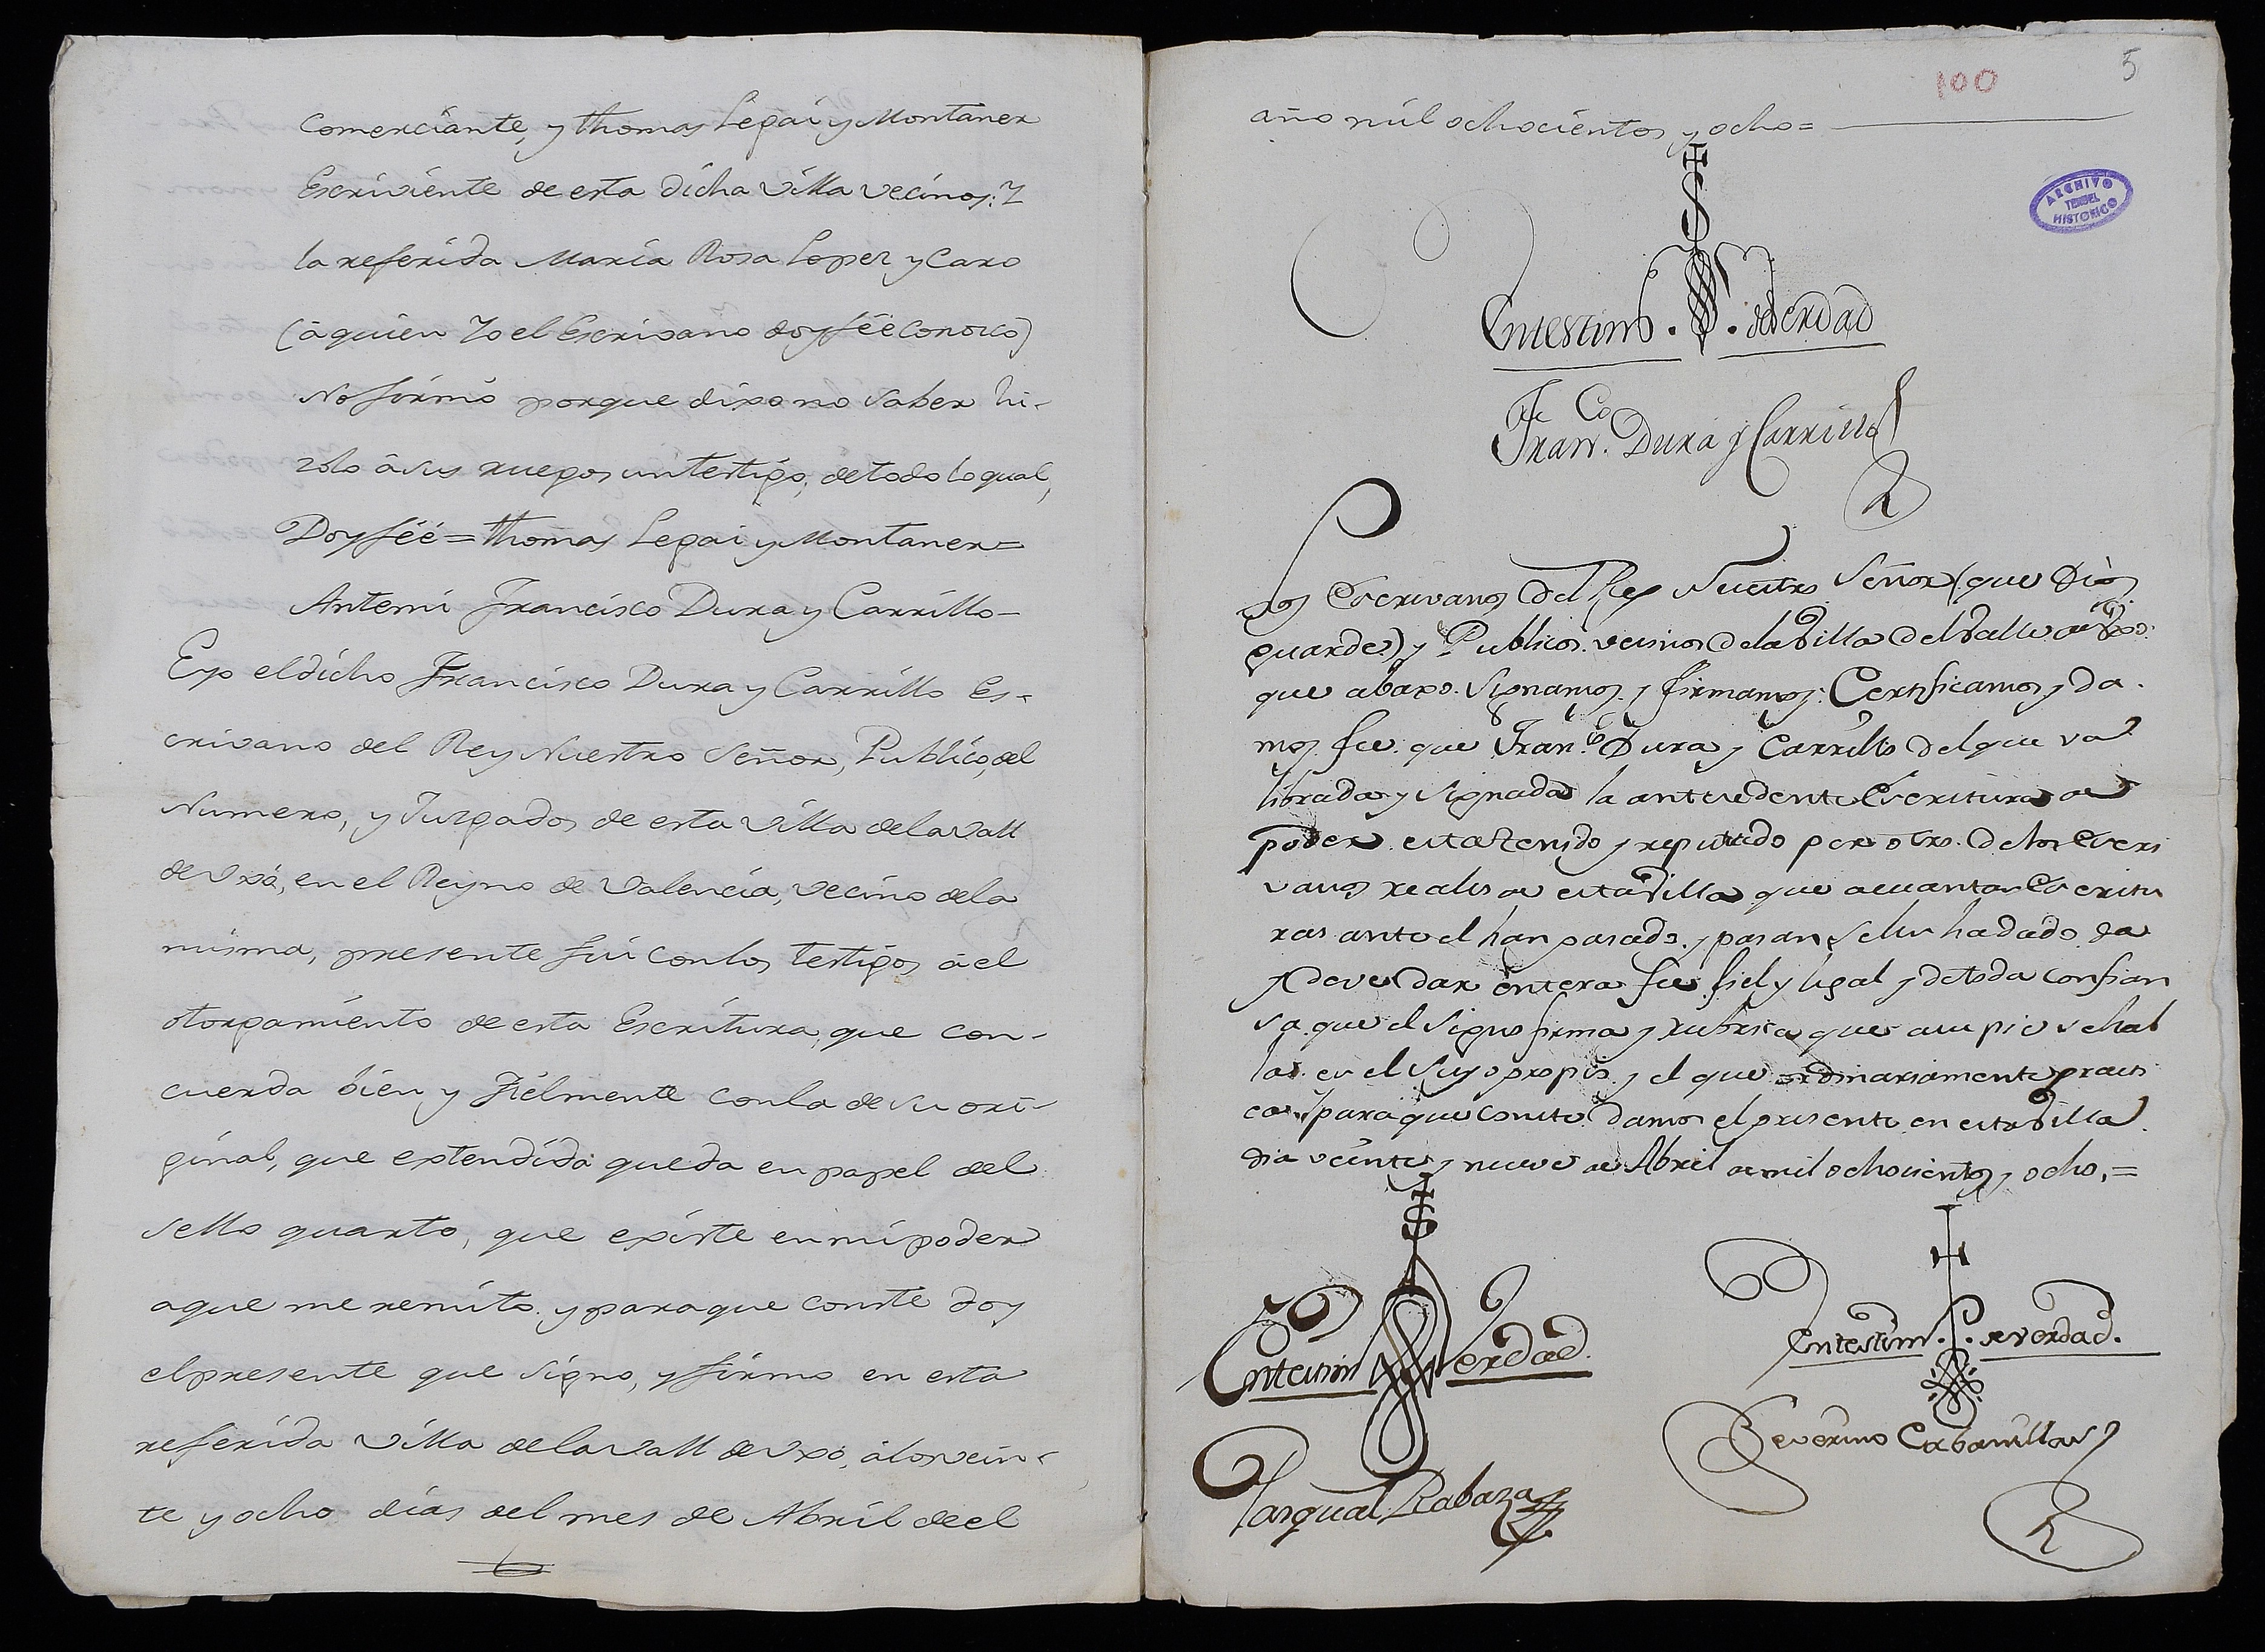 Comerciante, y Thomas Segai y Montaner
Escriviente de esta dicha Villa vecinos: Y
la referida Maria Rosa Lopez y Caro
(á quien Yo el Escrivano doy féé conosco)
No firmó porque dixo no saber hi-
zolo á sus ruegos un testigo; de todo lo qual,
Doy féé = Thomas Segai y Montaner =
Antemi Francisco Dura y Carrillo -
E yo el dicho Francisco Dura y Carrillo Es-
crivano del Rey Nuestro Señor, Publico, del
Numero, y Juzgados de esta Villa de la Vall
de Uxó, en el Reyno de Valencia, vecino de la
misma, presente fui con los testigos á el
otorgamiento de esta Escritura, que con-
cuerda bien y fielmente con la de su ori-
ginal, que extendida queda en papel del
sello quarto, que existe en mi poder
a que me remito. y para que conste doy
el presente que signo, y firmo en esta
referida Villa de la Vall de Uxó, á los vein-
te y ocho dias del mes de Abril de el
100
5
año mil ochocientos y ocho =
ARCHIVO
TERUEL
HISTORICO
En testimº . de verdad
Franco. Dura y Carrillo
Los Escrivanos del Rey Nuestro Señor (que Dios
guarde) y Publicos. vecinos de la Villa del Valle de Uxo.
que abaxo. signamos. y firmamos: Certificamos y da.
mos fee. que Fran.co Dura y Carrillo del que va
librada y signada la antecedente Escritura de
poder. esta tenido y reputado por otro. de los Escri
vanos reales de esta Villa que a cuantas Escritu
ras ante el han pasado. y pasan se les ha dado da
y deve dar entera fee. fiel y legal y de toda confian
sa. que el signo firma y rubrica que a su pie se hal
la. es el suyo propio. y el que ordinariamente practi
ca. Y para que conste. damos el presente en esta Villa.
dia veinte y nueve de Abril de mil ochocientos y ocho. =
En testim Verdad.
En testim . de verdad.
Pasqual Rabaza
Severino Cabanillas